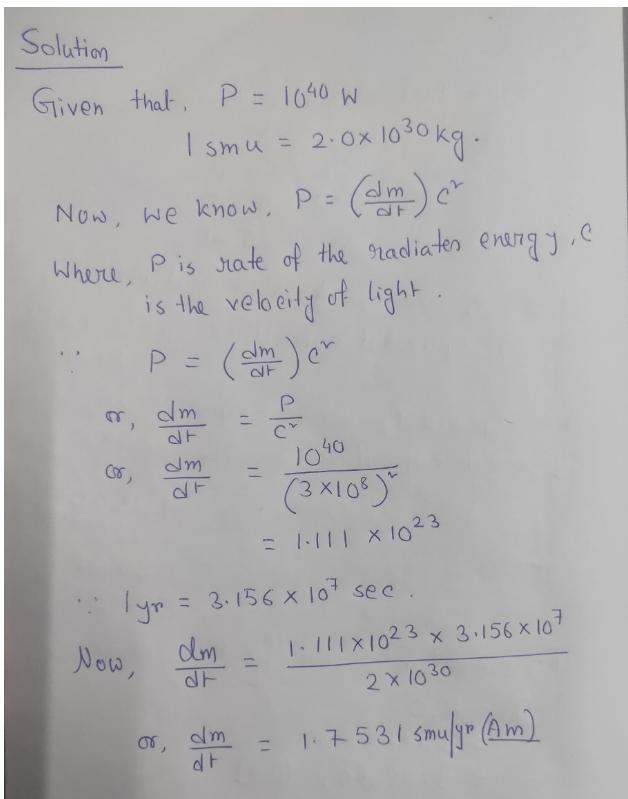 Solution
Given that, P = 10^40 W
1 smu = 2.0 x 10^30 kg.
Now, we know, P = (dm/dt) c^2
Where, P is rate of the radiates energy, c
is the velocity of light.
∵ P = (dm/dt) c^2
or, dm/dt = P/c^2
or, dm/dt = 10^40/(3 x 10^8)^2
= 1.111 x 10^23
∵ 1 yr = 3.156 x 10^7 sec.
Now, dm/dt = 1.111 x 10^23 x 3.156 x 10^7 / 2 x 10^30
or, dm/dt = 1.7531 smu/yr (Am)